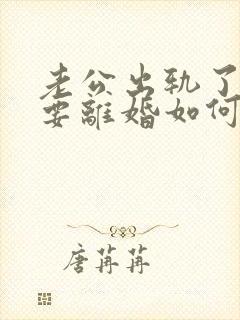 老公出轨了
要離婚如何
唐苒苒